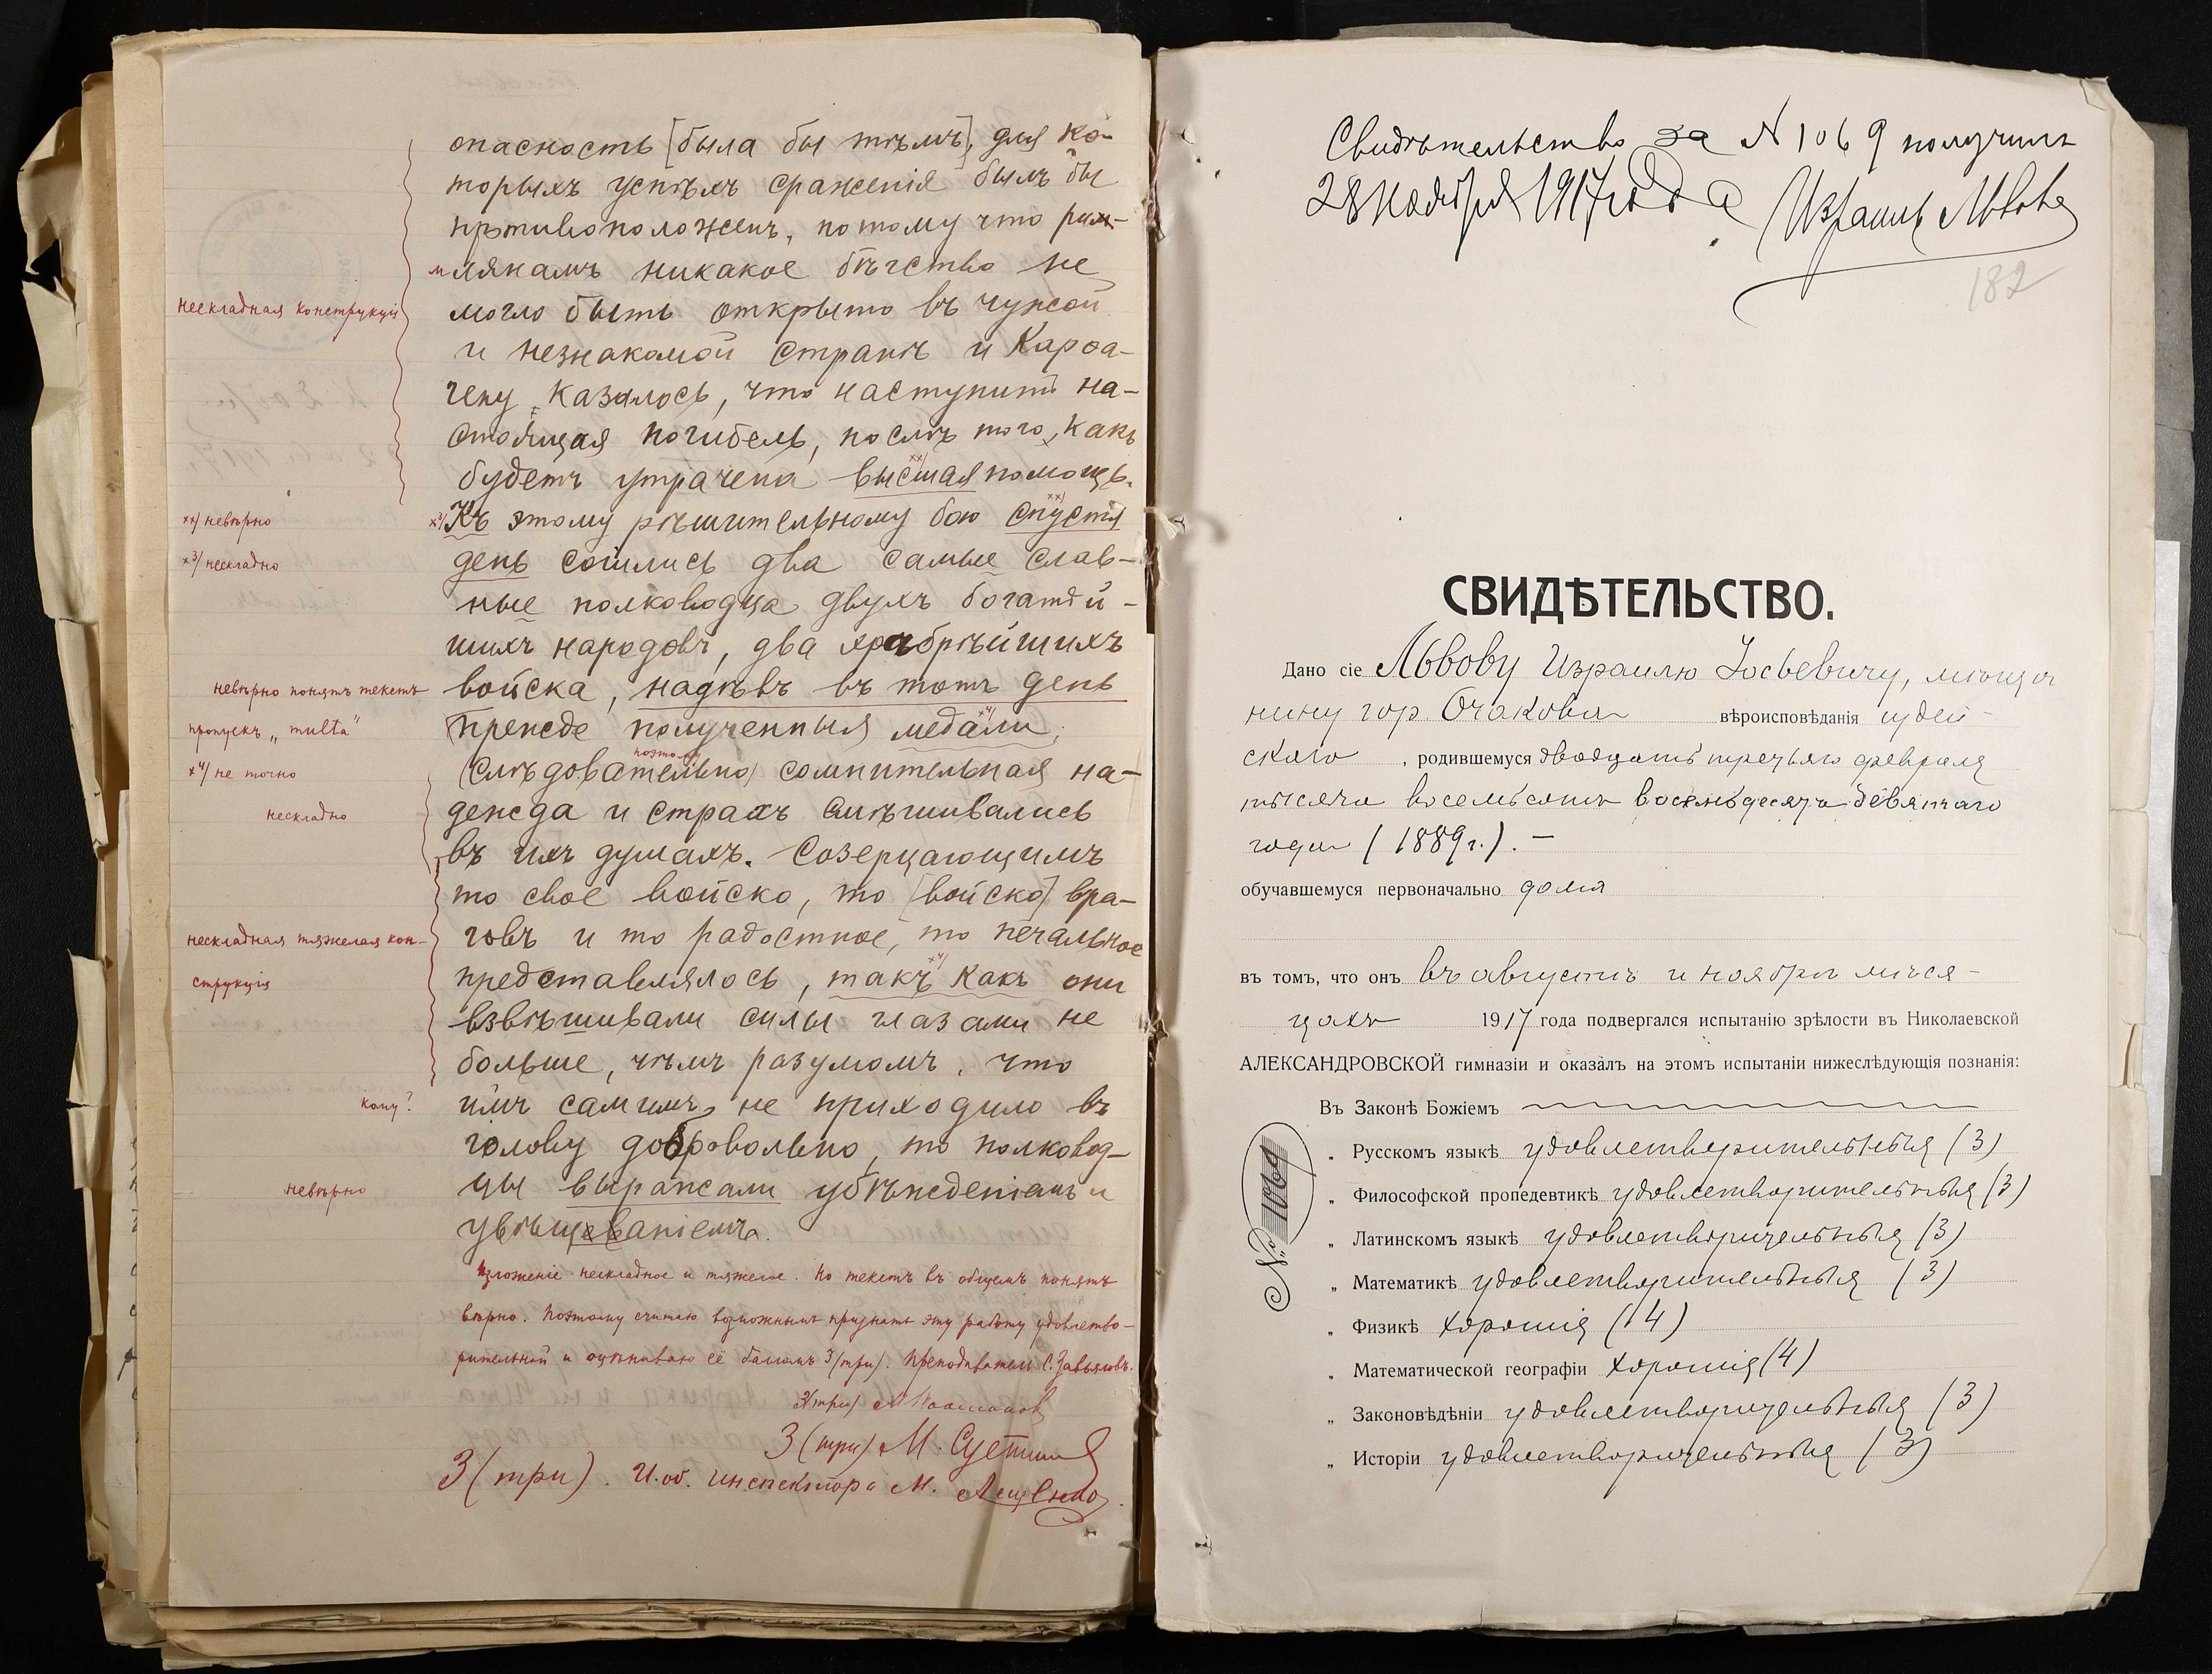 опасность [была бы тѣмъ], для ко-
торыхъ успѣхъ сраженія былъ бы
противоположенъ, потому что рим-
млякамъ никакое бѣгство не
нескладная конструкція
могло быть открыто въ чужой
и незнакомой странѣ и Карѳа-
гену казалось, что наступитъ на-
стоящая погибель, послѣ того, какъ
будетъ утрачена высшая xx) помощь.
xx) невѣрно
x3) Къ этому рѣшительному бою спустя xx)
x3) нескладно
день сошлись два самые слав-
ные полководца двухъ богатѣй-
шихъ народовъ, два храбрѣйшихъ
невѣрно понятъ текстъ
войска, надѣвъ въ тотъ день
пропускъ „multa"
прежде полученныя медали x4);
x4) не точно
(слѣдовательно) поэтому сомнительная на-
нескладно
дежда и страхъ смѣшивались
въ ихъ душахъ. Созерцающимъ
то свое войско, то [войско] вра-
нескладная тяжелая кон-
говъ и то радостное, то печальное
струкція
представлялось, такъ какъ x4) они
взвѣшивали силы глазами не
больше, чѣмъ разумомъ. что
кому?
имъ самимъ не приходило въ
голову добровольно, то полковод-
невѣрно
цы выражали убѣжденіемъ и
увѣщеваніемъ.
Изложеніе нескладное и тяжелое. Но текстъ въ общемъ понятъ
вѣрно. Поэтому считаю возможнымъ признать эту работу удовлетво-
рительной и оцѣниваю её балломъ 3 (три). Преподаватель С. Завьяловъ.
3 (три)
3 (три) М. Суетин
3 (три). И. об. инспектора М. Лещенко.
Свидѣтельство за N 1069 получилъ
28 ноября 1917 года Израиль Львовъ
182
СВИДѢТЕЛЬСТВО.
Дано сіе Львову Израилю Іосьевичу, мѣща
нину гор. Очакова вѣроисповѣданія иудей-
скаго, родившемуся двадцать третьяго февраля
тысяча восемьсотъ восемьдесятъ девятаго
года (1889 г.). —
обучавшемуся первоначально дома
въ томъ, что онъ въ августѣ и ноябрѣ мѣся-
цахъ 1917 года подвергался испытанію зрѣлости въ Николаевской
АЛЕКСАНДРОВСКОЙ гимназіи и оказалъ на этомъ испытаніи нижеслѣдующія познанія:
Въ Законѣ Божіемъ
„ Русскомъ языкѣ удовлетворительныя (3)
„ Философской пропедевтикѣ удовлетворительныя (3)
„ Латинскомъ языкѣ удовлетворительныя (3)
„ Математикѣ удовлетворительныя (3)
„ Физикѣ хорошія (4)
„ Математической географіи хорошія (4)
„ Законовѣдѣніи удовлетворительныя (3)
„ Исторіи удовлетворительныя (3)
№ 1069